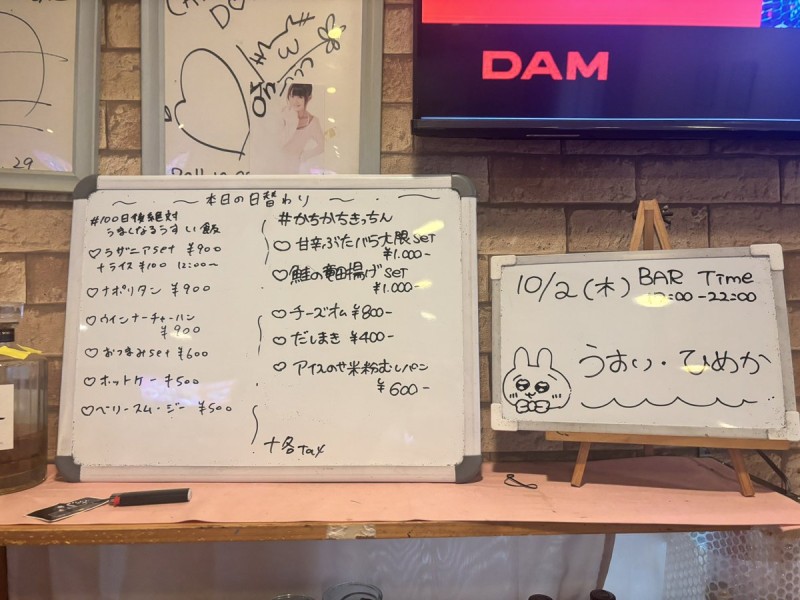 29
DAM
～ 本日の日替わり ～
#100日後絶対
うまくなるうすしい飯
♡ラザニアset ¥900
+ライス¥100 12:00〜
♡ナポリタン ¥900
♡ウインナーチャーハン
¥900
♡おつまみset ¥600
♡ホットケーキ500
♡ベリースムージー ¥500
#かちかちきっちん
♡甘辛ぶたバラ大服set
¥1.000-
♡鮭の竜田揚げset
¥1.000-
♡チーズオム¥800-
♡だしまき ¥400-
♡アイスのせ米粉むしパン
¥600-
+各Tax
10/2(木) BAR Time
:00-22:00
うすい・ひめか